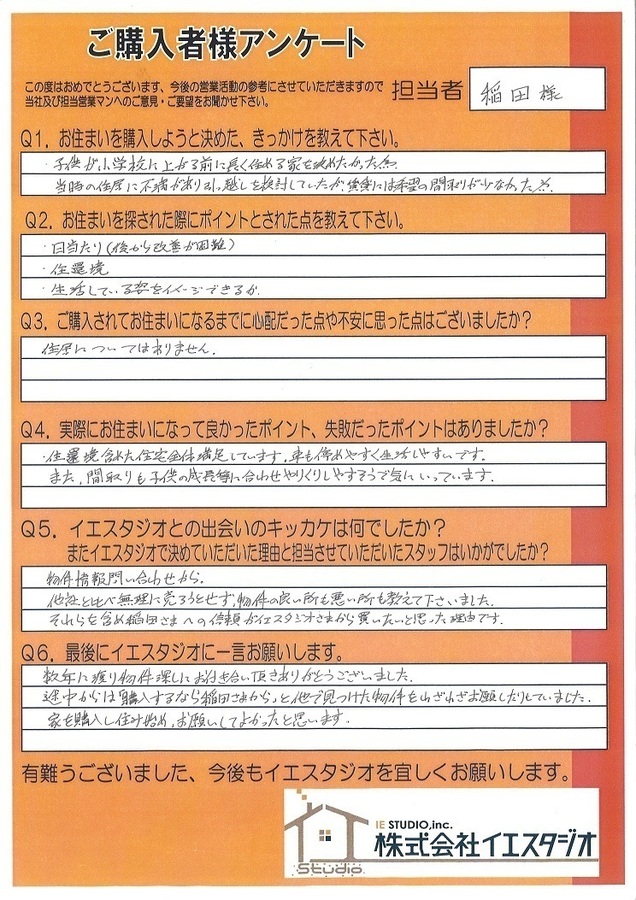 ご購入者様アンケート
この度はおめでとうございます、今後の営業活動の参考にさせていただきますので
当社及び担当営業マンへのご意見・ご要望をお聞かせ下さい。
担当者 稲田様
Q1．お住まいを購入しようと決めた、きっかけを教えて下さい。
・子供が小学校に上がる前に長く住める家を決めたかった為
当時の住居に不満があり引っ越しを検討していたが、賃貸には希望の間取りが少なかった為。
Q2．お住まいを探された際にポイントとされた点を教えて下さい。
・日当たり（後から改善が困難）
・住環境
・生活している姿をイメージできるか。
Q3．ご購入されてお住まいになるまでに心配だった点や不安に思った点はございましたか？
住居についてはありません。
Q4．実際にお住まいになって良かったポイント、失敗だったポイントはありましたか？
・住環境含めた住宅全体満足しています。車も停めやすく生活しやすいです。
また、間取りも子供の成長等に合わせやりくりしやすそうで気にいっています。
Q5．イエスタジオとの出会いのキッカケは何でしたか？
またイエスタジオで決めていただいた理由と担当させていただいたスタッフはいかがでしたか？
物件情報問い合わせから。
他社と比べ無理に売ろうとせず、物件の良い所も悪い所も教えて下さいました。
それらを含め稲田さまへの信頼がイエスタジオさまから買いたいと思った理由です。
Q6．最後にイエスタジオに一言お願いします。
数年に渡り物件探しにお付き合い頂きありがとうございました。
途中からは「購入するなら稲田さまから」と他で見つけた物件をわざわざお願いしたりしていました。
家を購入し住み始め、お願いしてよかったと思います。
有難うございました、今後もイエスタジオを宜しくお願いします。
IE STUDIO,inc.
株式会社イエスタジオ
Studio